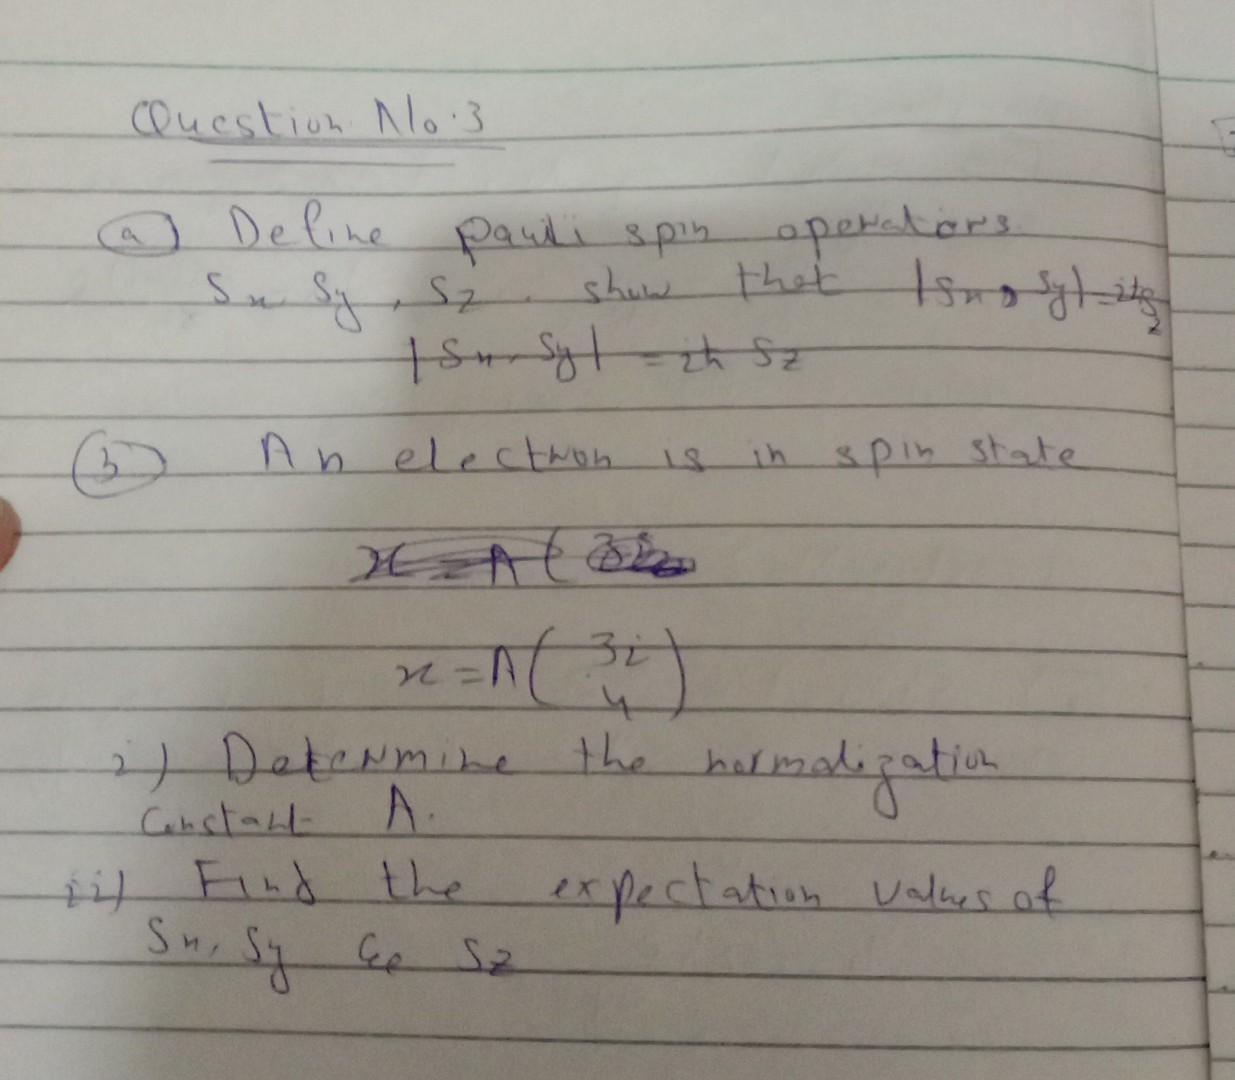 Question No.3
(a) Define Pauli spin operators
Sx Sy, Sz. show that |Sx, Sy| = iħSz
|Sx, Sy| = iħ Sz
(b) An electron is in spin state
x = A(
x = A( 3i
4 )
i) Determine the normalization
Constant A.
ii) Find the expectation values of
Sx, Sy & Sz